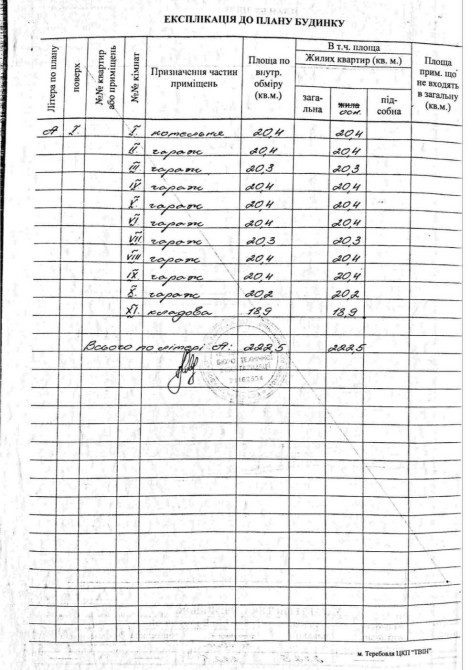 ЕКСПЛІКАЦІЯ ДО ПЛАНУ БУДИНКУ
Літера по плану
поверх
№№ квартир або приміщень
№№ кімнат
Призначення частин приміщень
Площа по внутр. обміру (кв.м.)
В т.ч. площа
Жилих квартир (кв. м.)
зага-льна
жила осн.
під-собна
Площа прим. що не входять в загальну (кв.м.)
А I I. котельня 20,4 20,4
II гараж 20,4 20,4
III гараж 20,3 20,3
IV гараж 20,4 20,4
V. гараж 20,4 20,4
VI гараж 20,4 20,4
VII гараж 20,3 20,3
VIII гараж 20,4 20,4
IX гараж 20,4 20,4
X. гараж 20,2 20,2
XI. кладова 18,9 18,9
Всього по літері А: 222,5 222,5
м. Теребовля ЦКП "ТВІН"